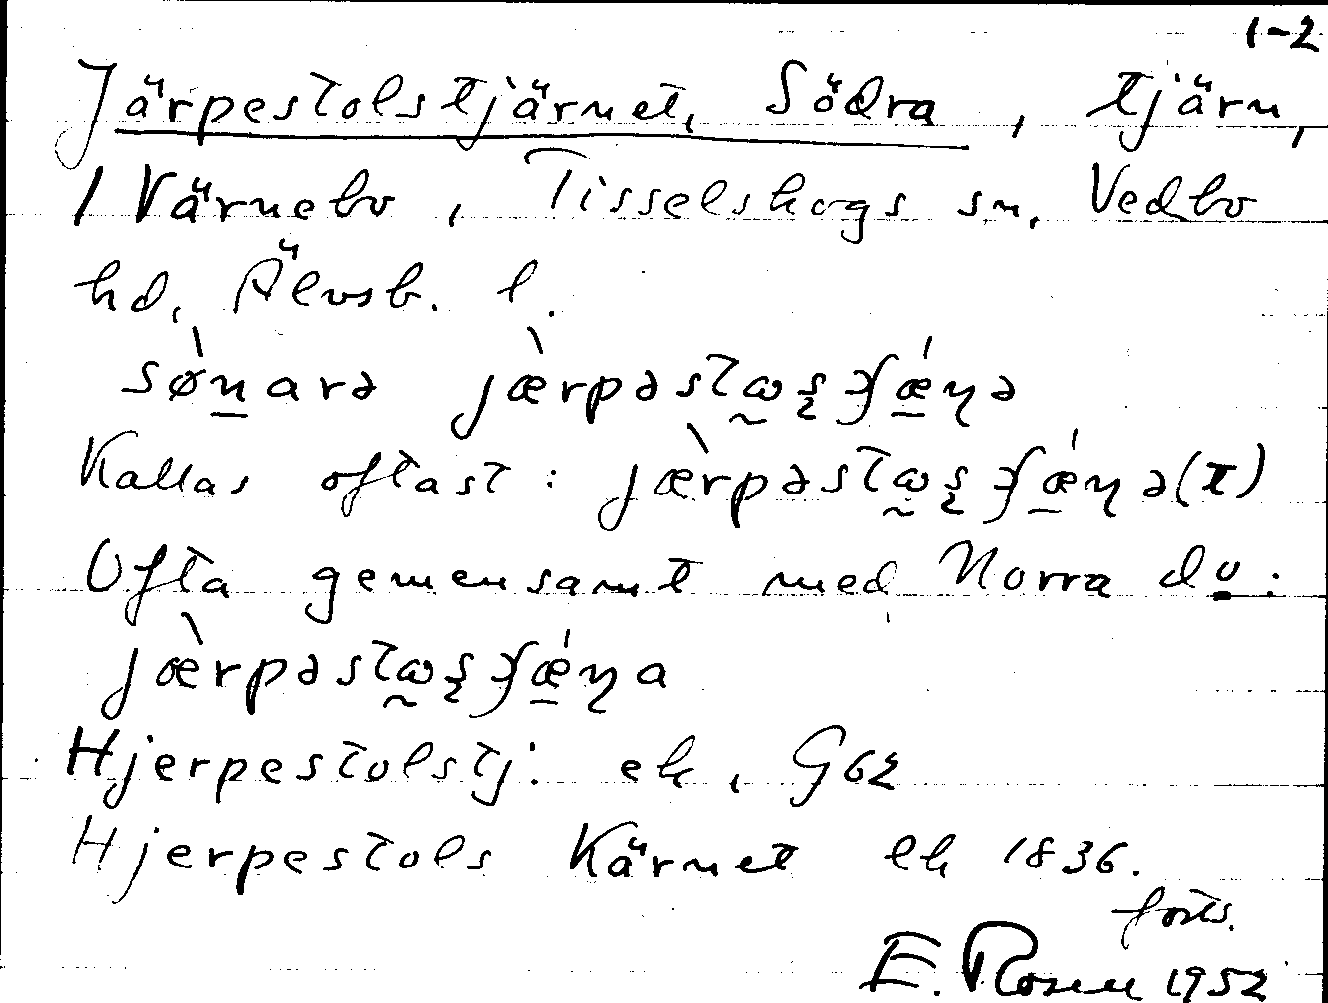 1-2
Järpestolstjärnet, Södra, tjärn,
1 Värnebo, Tisselskogs sn, Vedbo
hd, Älvsb. l.
sø̀narə jæ̀rpəstɷʂʄǽɳə
Kallas oftast: jæ̀rpəstɷʂʄǽɳə(t)
Ofta gemensamt med Norra do:
jæ̀rpəstɷʂʄǽɳa
Hjerpestolstj: ek, G62
Hjerpestols Kärnet lk 1836.
forts.
E. Rosen 1952